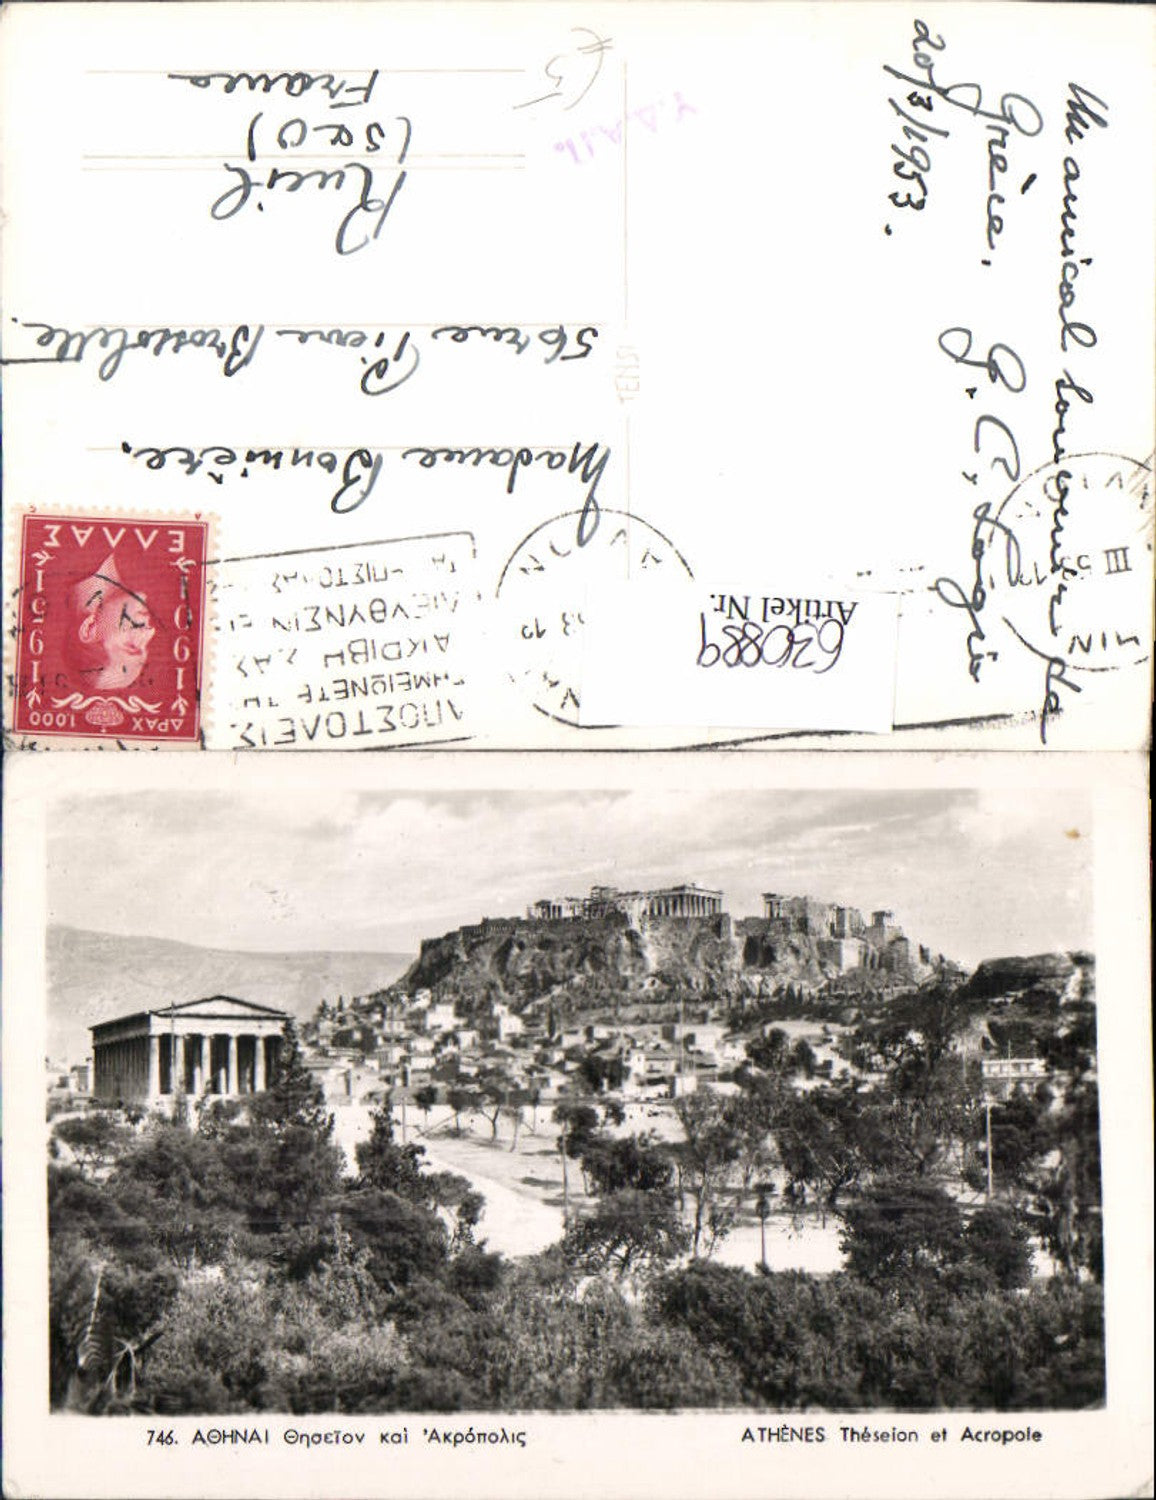 Un amical souvenir de
Grèce.
20/3/1953.
Madame Bonnière.
56 rue Pierre Brossolette.
Rueil
(S&O)
France
€5
ΕΛΛΑΣ
1901
1951
ΔΡΑΧ 1.000
ΑΠΟΣΤΟΛΕΙΣ
ΣΗΜΕΙΩΝΕΤΕ ΤΗΝ
ΑΚΡΙΒΗ ΣΑΣ
ΔΙΕΥΘΥΝΣΙΝ ΕΙΣ
Artikel Nr.
630889
746. ΑΘΗΝΑΙ Θησεῖον καὶ Ἀκρόπολις
ATHÈNES Théseion et Acropole